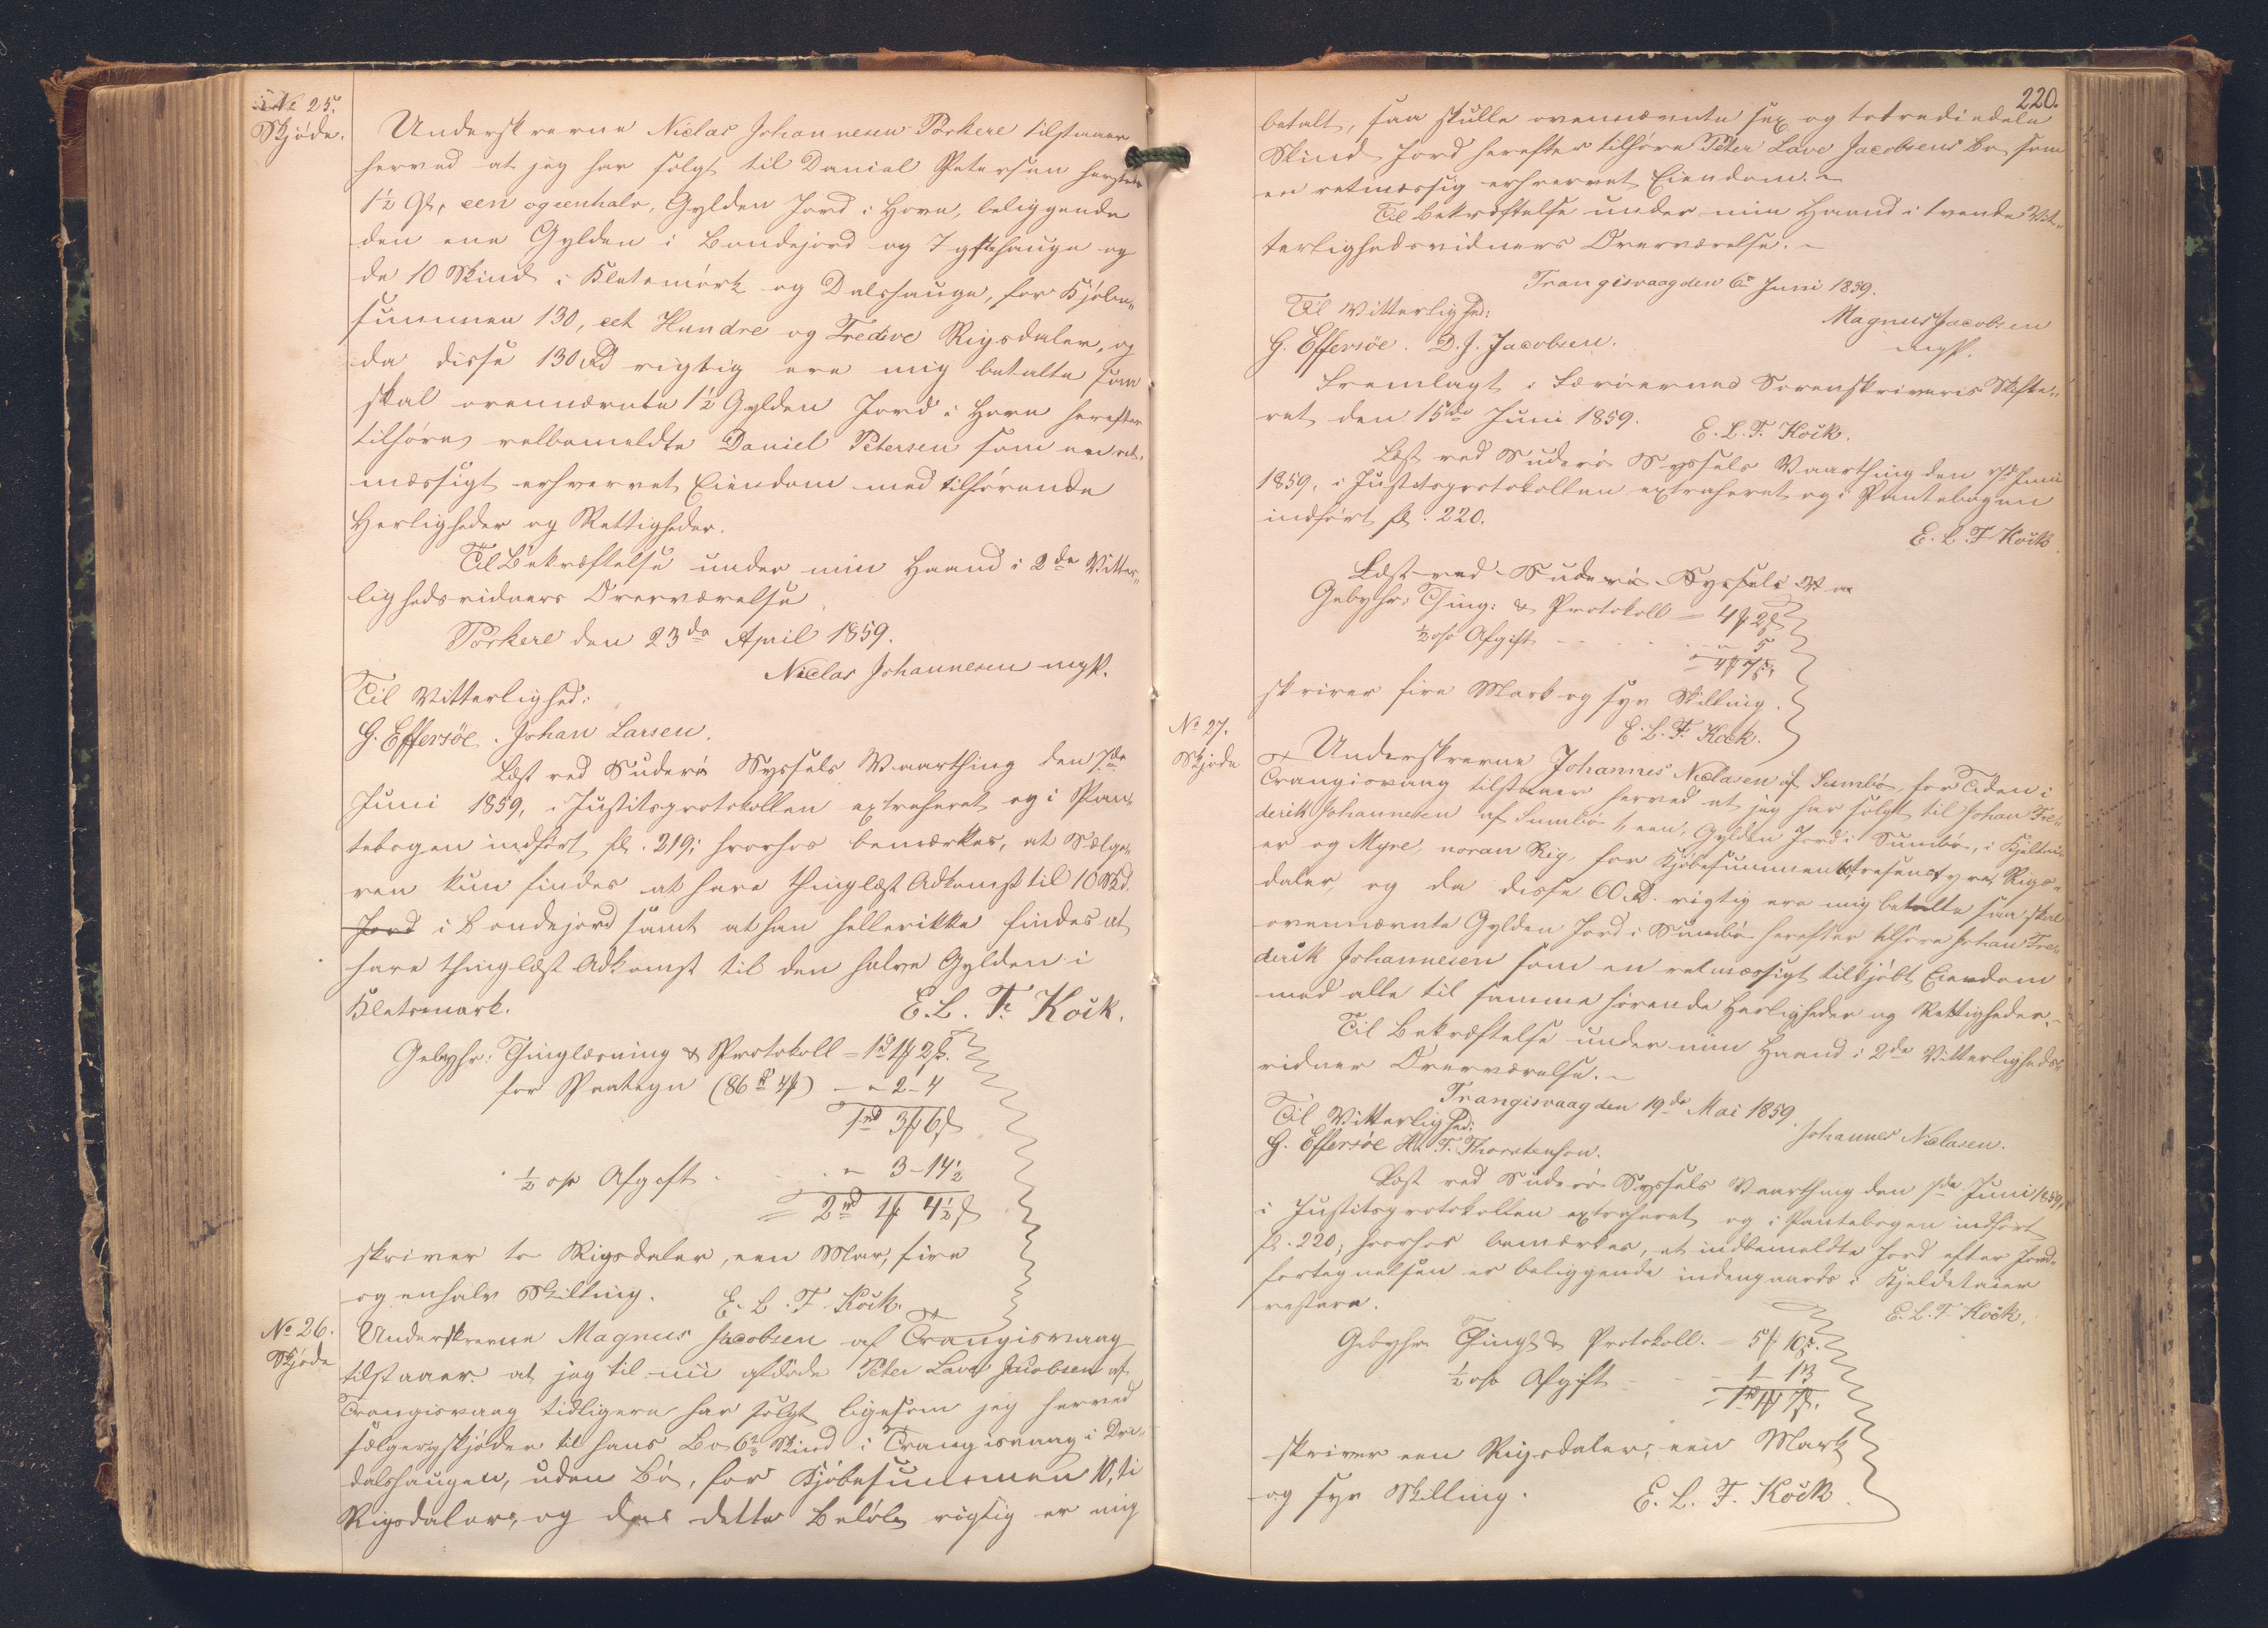 No 25.
Skjøde.
Underskrevne Niclas Johannesen Porkere tilstaaer
herved at jeg har solgt til Daniel Petersen
1½ Gl, een ogeenhalv, Gylden Jord i Hove, beliggende
den ene Gylden i Bondejord og og
de 10 Skind i Kletsmörk og Dalshauge, for Kjöbe„
summen 130, eet Hundre og Tredive Rigsdaler, og
da disse 130 Rd rigtig ere mig betalte saa
skal ovennævnte 1½ Gylden Jord i Hove herefter
tilhöre velbemeldte Daniel Petersen som en ret„
mæssigt erhvervet Eiendom med tilhörende
Herligheder og Rettigheder.
Til Bekræftelse under min Haand i 2de Vitter„
lighedsvidners Overværelse
Porkere den 23de April 1859.
Niclas Johannesen mpp.
Til Vitterlighed:
G. Effersöe. Johan Larsen.
Læst ved Suderö Syssels Vaarthing den 7de
Juni 1859, i Justitsprotokollen extraheret og i Pan„
tebogen indfört fl. 219; hvorhos bemærkes, at Sælge„
ren kun findes at have thinglæst Adkomst til 16 Skd.
Jord i Bondejord samt at han hellerikke findes at
have thinglæst Adkomst til den halve Gylden i
Kletsmark.
E. L. F. Kock.
Gebyhr: Thinglæsning & Protokoll = 1rd 1 2
for Paategn (86 ) – „ 2 – 4
1rd 3 6
½ o/o Afgift „ 3 – 14½
= 2rd 1 4½
skriver to Rigsdaler, een Mar, fire
og enhalv Skilling. E. L. F. Kock.
No 26.
Skjöde
Underskrevne Magnus Jacobsen af Trangisvaag
tilstaaer at jeg til nu afdöde Peter Lave Jacobsen af
Trangisvaag tidligere har solgt ligesom jeg herved
sælger og skjöder til hans Bo 6⅔ Skind i Trangisvaag i
dalshaugen, uden Bö, for Kjöbesummen 10, ti
Rigsdaler, og da dette Belöb rigtig er mig
220.
betalt, saa skulle ovennævnte sex og totrediedele
Skind Jord herefter tilhöre Peter Lave Jacobsens Bo som
en retmæssig erhvervet Eiendom. –
Til Bekræftelse under min Haand i tvende Vit„
terlighedsvidners Overværelse. –
Trangisvaag den 6te Juni 1859.
Til Vitterlighed:
Magnus Jacobsen
mpp.
G. Effersöe. D. J. Jacobsen.
Fremlagt i Færöernes Sorenskriveries Skifte„
ret den 15de Juni 1859.
E. L. F. Kock.
Læst ved Suderö Syssels Vaarthing den 7de Juni
1859, i Justitsprotokollen extraheret og i Pantebogen
indfört fl. 220.
E. L. F. Kock.
Læst ved Suderö Syssels Va
Gebyhr: Thing: & Protokoll = 4 2
½ o/o Afgift „ 5
4 7
skriver fire Mark og syv Skilling.
E. L. F. Kock.
No 27.
Skjöde
Underskrevne Johannes Niclasen af Sumbö, for Tiden i
Trangisvaag tilstaaer herved at jeg har solgt til Johan Fre„
derik Johannesen af Sumbö 1, een, Gylden Jord i Sumbö, i
er og Myre, for Kjöbesummen Rigs„
daler, og da disse 60 Rd. rigtig ere mig betalte saa skal
ovennævnte Gylden Jord i Sumbö herefter tilhöre Johan Fre„
derik Johannesen som en retmæssigt tilkjöbt Eiendom
med alle til samme hörende Herligheder og Rettigheder. –
Til Bekræftelse under min Haand i 2de Vitterligheds„
vidner Overværelse. –
Trangisvaag den 19de Mai 1859.
Til Vitterlighed:
Johannes Niclasen.
G. Effersöe H. F. Thorstenson.
Læst ved Suderö Syssels Vaarthing den 7de Juni 1859,
i Justitsprotokollen extraheret og i Pantebogen indfört
fl. 220; hvorhos bemærkes, at indbemeldte Jord efter Jord„
fortegnelsen er beliggende indengaards i Kjeldetaier
vestere.
E. L. F. Kock.
Gebyhr Thingl. & Protokoll. = 5 10
½ o/o Afgift 1 13
1rd 1 7
skriver een Rigsdaler, een Mark
og syv Skilling. E. L. F. Kock.